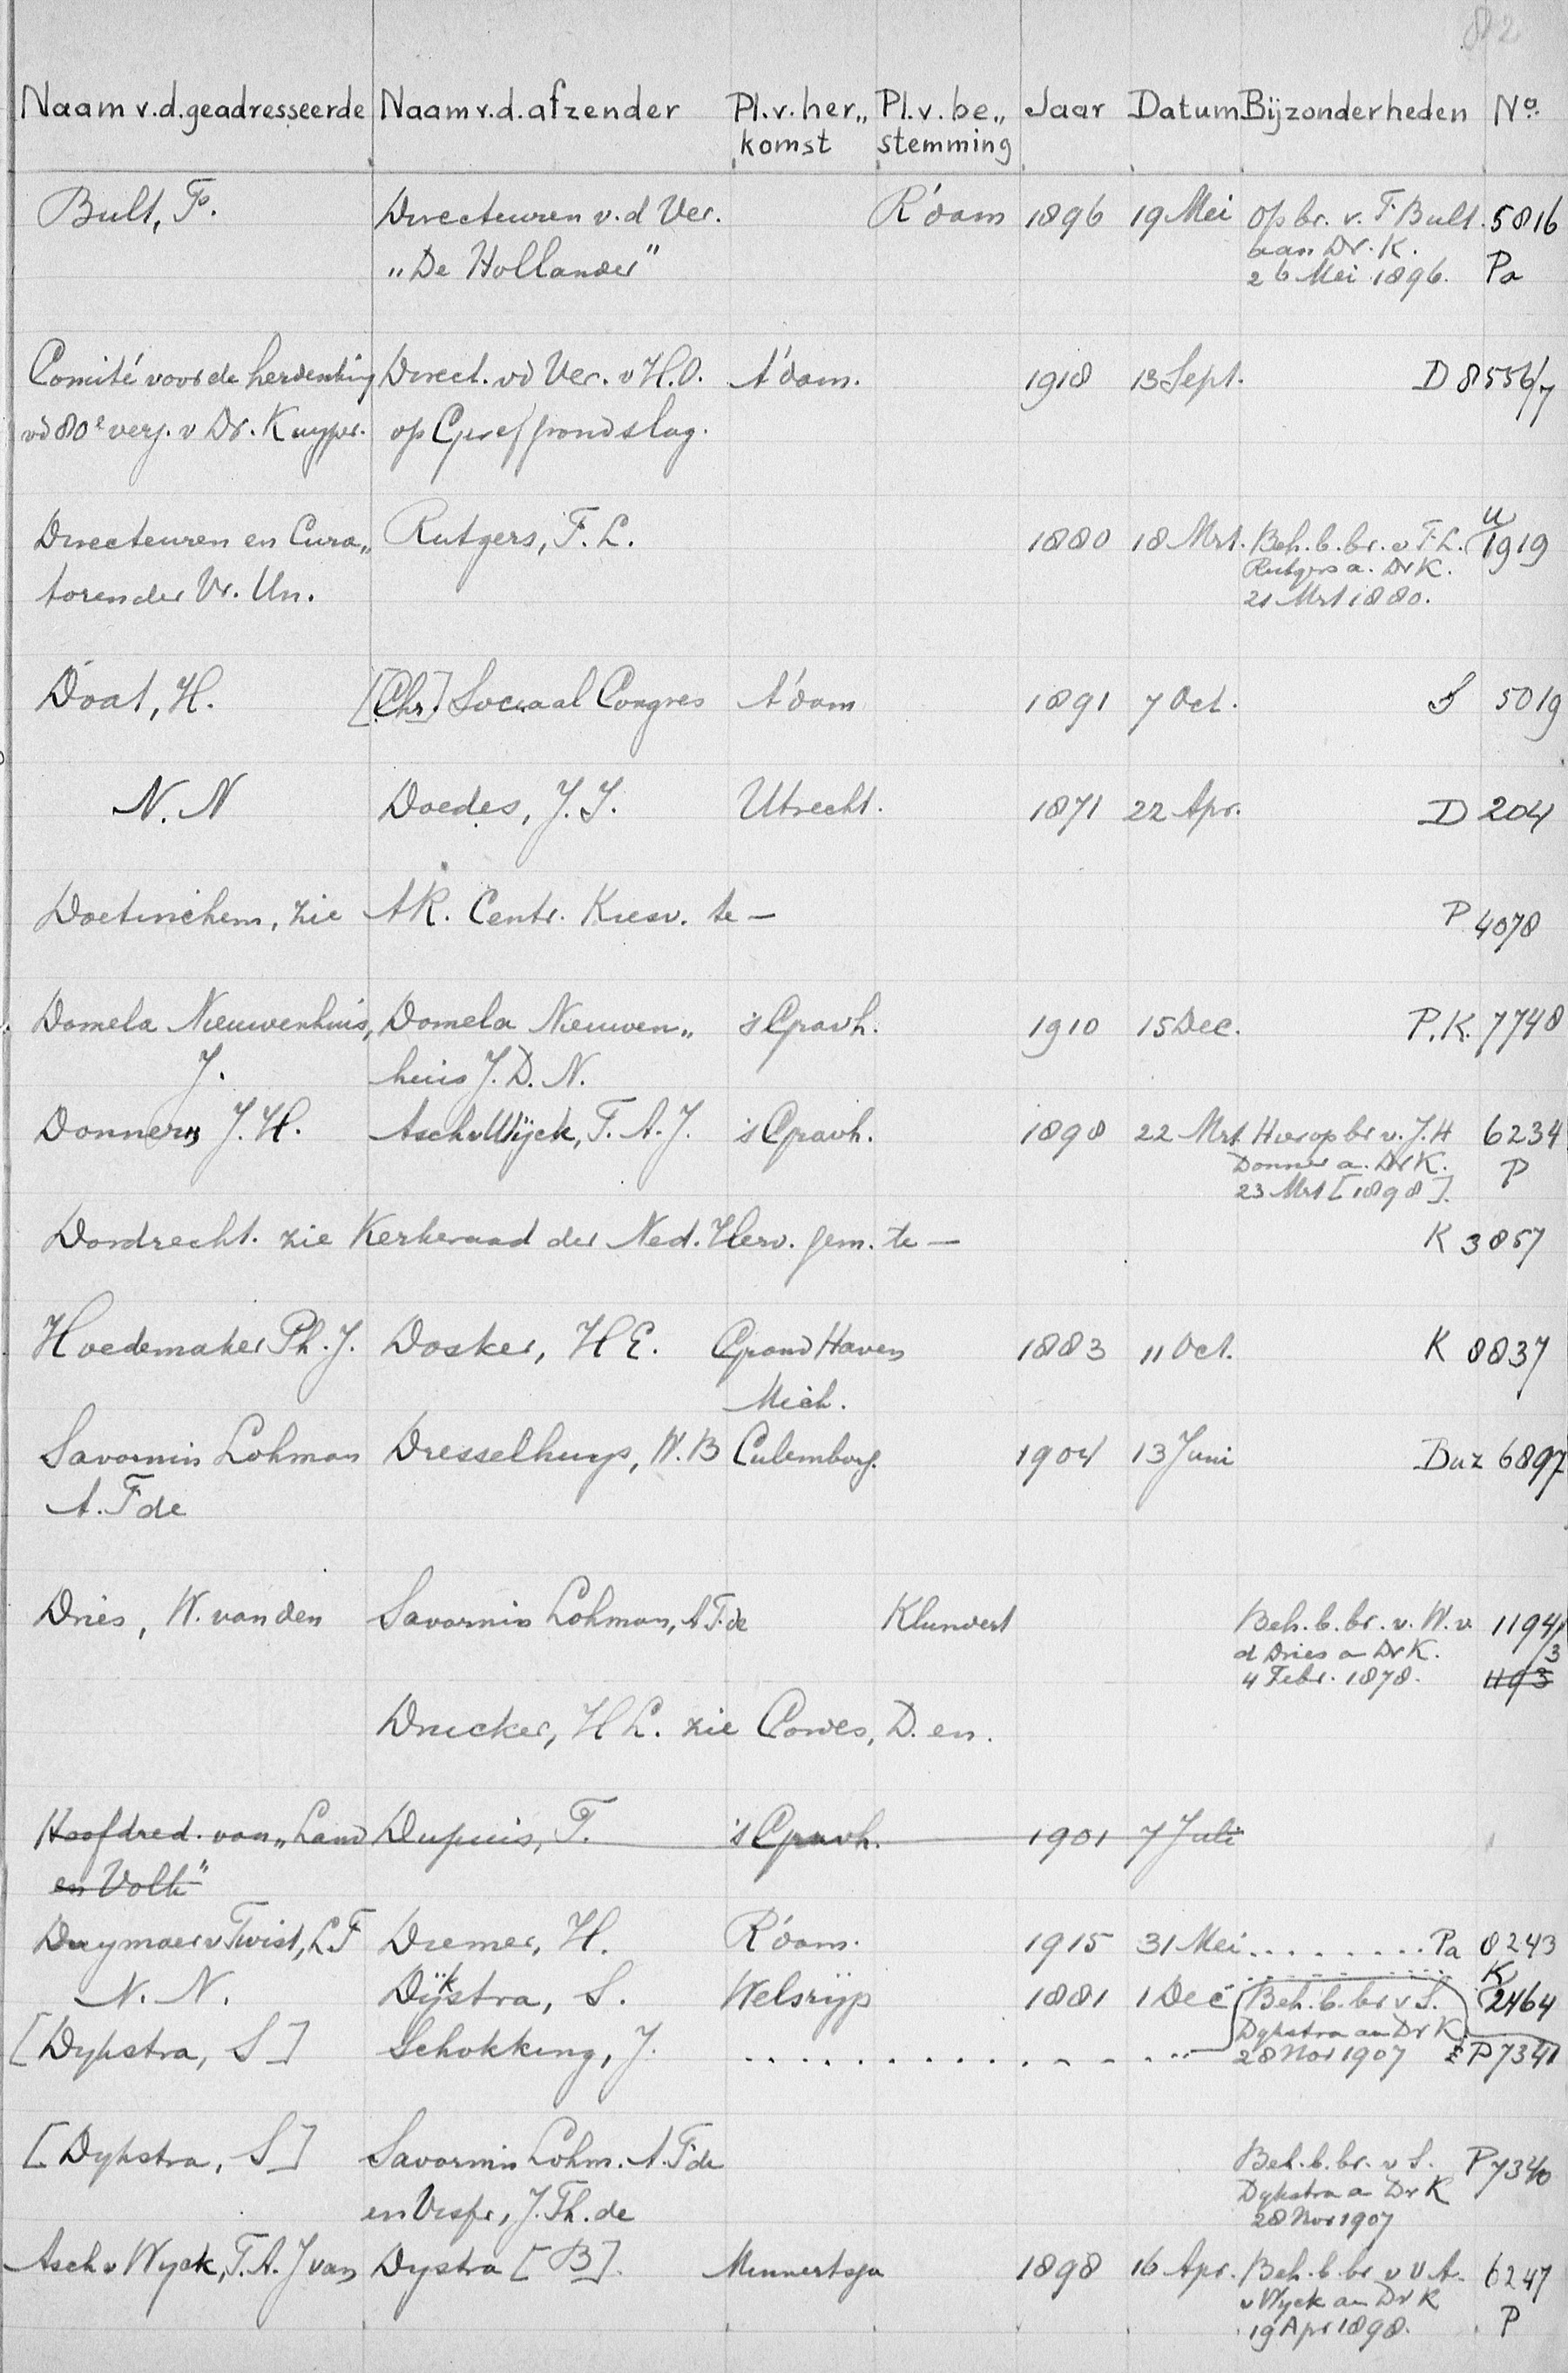 82
Naam v.d. geadresseerde Naam v.d. afzender Pl. v. her„ Pl. v. be„ Jaar Datum Bijzonderheden No.
komst stemming
Bult, F. Directeuren v.d Ver. R'dam 1896 19 Mei Op br. v. F. Bult 5816
„De Hollander" aan Dr. K. Pa
26 Mei 1896.
Comité voor de herdenking Direct. vd Ver. v H.O. A'dam. 1918 13 Sept. D 8556/7
vd 80e verj. v Dr. Kuyper. op Geref grondslag.
Directeuren en Cura„ Rutgers, F. L. 1880 18 Mrt. Beh. b. br. v F.L. U 1919
toren der Vr. Un. Rutgers a. Dr K.
21 Mrt 1880.
Doat, H. [Chr.] Sociaal Congres A'dam 1891 7 Oct. S 5019
N. N Doedes, J. I. Utrecht. 1871 22 Apr. D 204
Doetinchem, zie AR. Centr. Kiesv. te — P 4078
Domela Nieuwenhuis, Domela Nieuwen„ 's Gravh. 1910 15 Dec. P.K. 7748
J. huis J. D. N.
Donner, J. H. Asch v Wijck, T. A. J. 's Gravh. 1898 22 Mrt Hierop br v. J. H 6234
Donner a. Dr K. P
23 Mrt [1898].
Dordrecht. zie Kerkeraad der Ned. Herv. gem. te — K 3857
Hoedemaker Ph. J. Dosker, H E. Grand Haven 1883 11 Oct. K 8837
Mich.
Savornin Lohman Dresselhuys, W. B Culemborg. 1904 13 Juni Duz 6897
A. F de
Dries, W. van den Savornin Lohman, A F. de Klundert Beh. b. br. v. W. v. 1194/3
d Dries a Dr K. 1193
4 Febr. 1878.
Drucker, H L. zie Cowes, D. en.
Hoofdred. van „Land Dupuis, F. 's Gravh. 1901 7 Juli
en Volk"
Duymaer v Twist, L F Diemer, H. R'dam. 1915 31 Mei ........ Pa 8243
N. N. Dijkstra, S. Welsrijp 1881 1 Dec Beh. b. br v S. K 2464
[Dykstra, S] Schokking, J. .......... Dykstra aan Dr K
28 Nov 1907 P 7341
[Dykstra, S] Savornin Lohm. A. F de Beh. b. br. v S. P 7340
en Visser, J. Th. de Dykstra a Dr K
28 Nov 1907
Asch v Wyck, T. A. J van Dystra [B]. Minnertsga 1898 16 Apr. Beh. b br v V A. 6247
v Wyck aan Dr K P
19 Apr 1898.